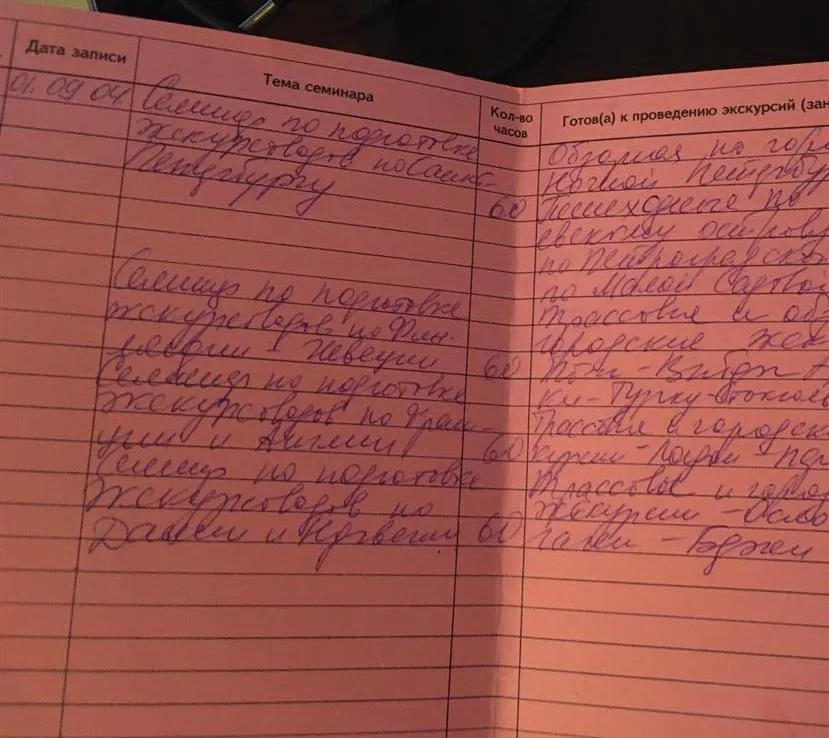 Дата записи
Тема семинара
Кол-во
часов
Готов(а) к проведению экскурсий (зан
01.09.04
Семинар по подготовке
экскурсоводов по Санкт-
Петербургу
60
Обзорная по гор
Ночной Петербу
Пешеходные по
евскому острову
по Петроградской
по Малой Садовой
Семинар по подготовке
экскурсоводов по Фин-
ляндии - Швеции
60
Трассовая и обз
городские экс
ки-Турку-Стокголь
Семинар по подготовке
экскурсоводов по Фран-
ции и Англии
60
Трассовая и городск
курсии-Лондон-Пар
Семинар по подготовке
экскурсоводов по
Дании и Норвегии
60
Трассовые и горо
экскурсии-Осло